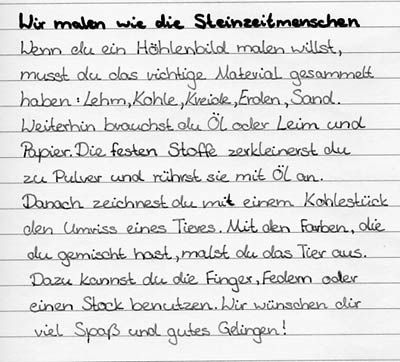 Wir malen wie die Steinzeitmenschen
Wenn du ein Höhlenbild malen willst,
musst du das richtige Material gesammelt
haben: Lehm, Kohle, Kreide, Erden, Sand.
Weiterhin brauchst du Öl oder Leim und
Papier. Die festen Stoffe zerkleinerst du
zu Pulver und rührst sie mit Öl an.
Danach zeichnest du mit einem Kohlestück
den Umriss eines Tieres. Mit den Farben, die
du gemischt hast, malst du das Tier aus.
Dazu kannst du die Finger, Federn oder
einen Stock benutzen. Wir wünschen dir
viel Spaß und gutes Gelingen!